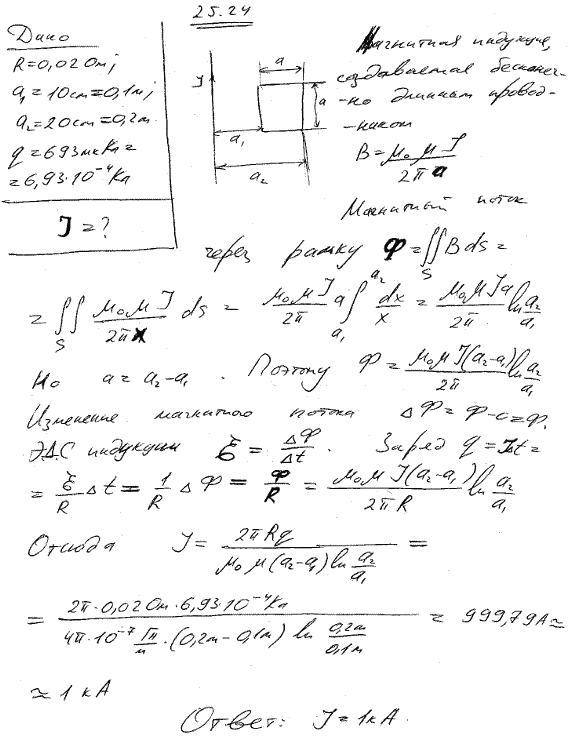 25.24
Дано
R=0,02 Ом;
a₁=10см=0,1м;
a₂=20см=0,2м.
q=693мкКл=
=6,93·10⁻⁴Кл
J=?
J
a
a
a₁
a₂
Магнитная индукция,
создаваемая бесконеч-
-но длинным провод-
-ником
B = μ₀ μ J / 2π a
Магнитный поток
через рамку Φ = ∬_S B ds =
= ∬_S μ₀ μ J / 2π x ds = μ₀ μ J / 2π a ∫_{a₁}^{a₂} dx/x = μ₀ μ J a / 2π ln a₂/a₁
Но a = a₂-a₁. Поэтому Φ = μ₀ μ J(a₂-a₁) / 2π ln a₂/a₁
Изменение магнитного потока ΔΦ = Φ-0 = Φ.
ЭДС индукции ξ = ΔΦ/Δt. Заряд q = Jδt =
= ξ/R Δt = 1/R ΔΦ = Φ/R = μ₀ μ J(a₂-a₁) / 2π R ln a₂/a₁
Отсюда J = 2π R q / μ₀ μ (a₂-a₁) ln a₂/a₁ =
= 2π·0,02 Ом·6,93·10⁻⁴Кл / 4π·10⁻⁷ Гн/м ·(0,2м-0,1м) ln 0,2м/0,1м = 999,79А ≈
≈ 1 кА
Ответ: J = 1кА.